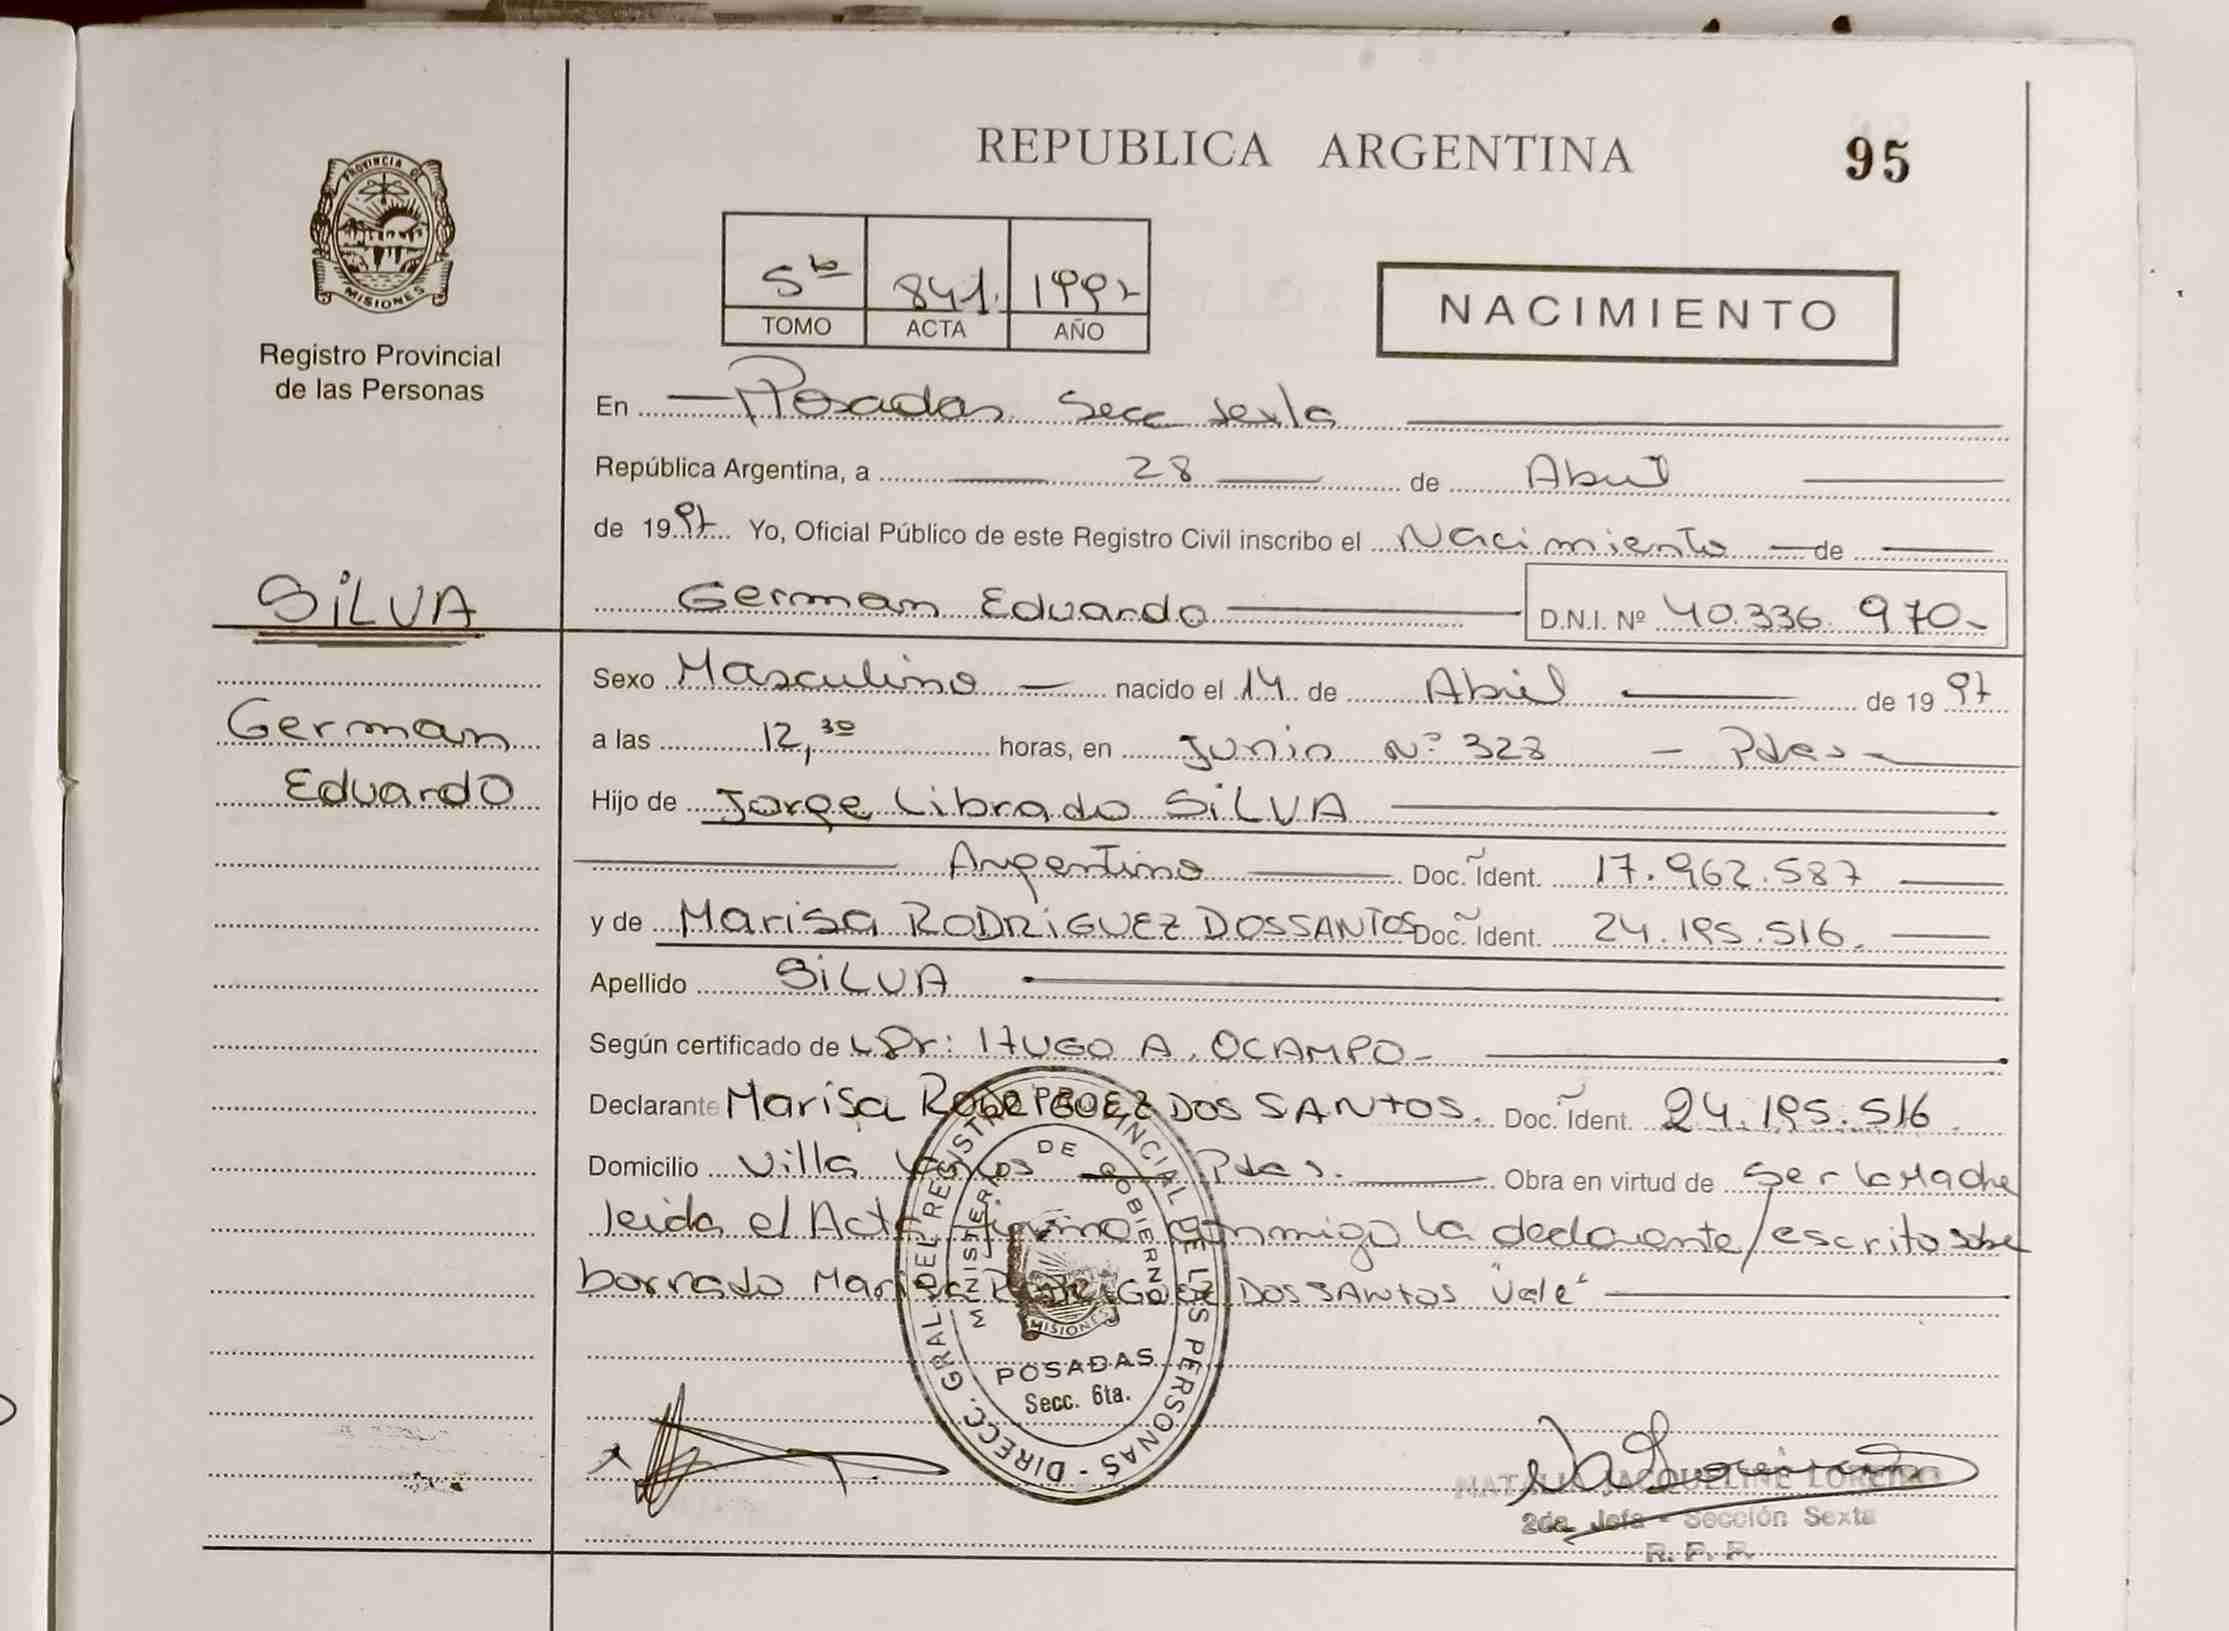 REPUBLICA ARGENTINA
95
PROVINCIA DE
MISIONES
Registro Provincial
de las Personas
5to 841. 1997
TOMO ACTA AÑO
NACIMIENTO
En Posadas Secc sexta
República Argentina, a 28 de Abril
de 1997 Yo, Oficial Público de este Registro Civil inscribo el Nacimiento de
SiLVA
German Eduardo D.N.I. Nº 40.336.970-
Sexo Masculino nacido el 14 de Abril de 1997
German
a las 12,30 horas, en Junin Nº 328 - Pdas
Eduardo
Hijo de Jorge Librado SiLVA
Argentino Doc. Ident. 17.962.587
y de Marisa RODRiGUEZ DOSSANTOS Doc. Ident. 24.195.516.
Apellido SiLVA
Según certificado de Dr: HUGO A. OCAMPO-
Declarante Marisa RODRIGUEZ DOS SANTOS. Doc. Ident. 24.195.516
Domicilio Villa Pdas. Obra en virtud de Ser la Madre
leida el Acta firma conmigo la declarante/escrito sobre
borrado Marisa RODRIGUEZ DOSSANTOS "Vale"
DIRECC. GRAL. DEL REGISTRO PROVINCIAL DE LAS PERSONAS -
MINISTERIO DE GOBIERNO
MISIONES
POSADAS
Secc. 6ta.
NATALIA JACQUELINE LOREIRO
2da. Jefa - Sección Sexta
R. P. P.